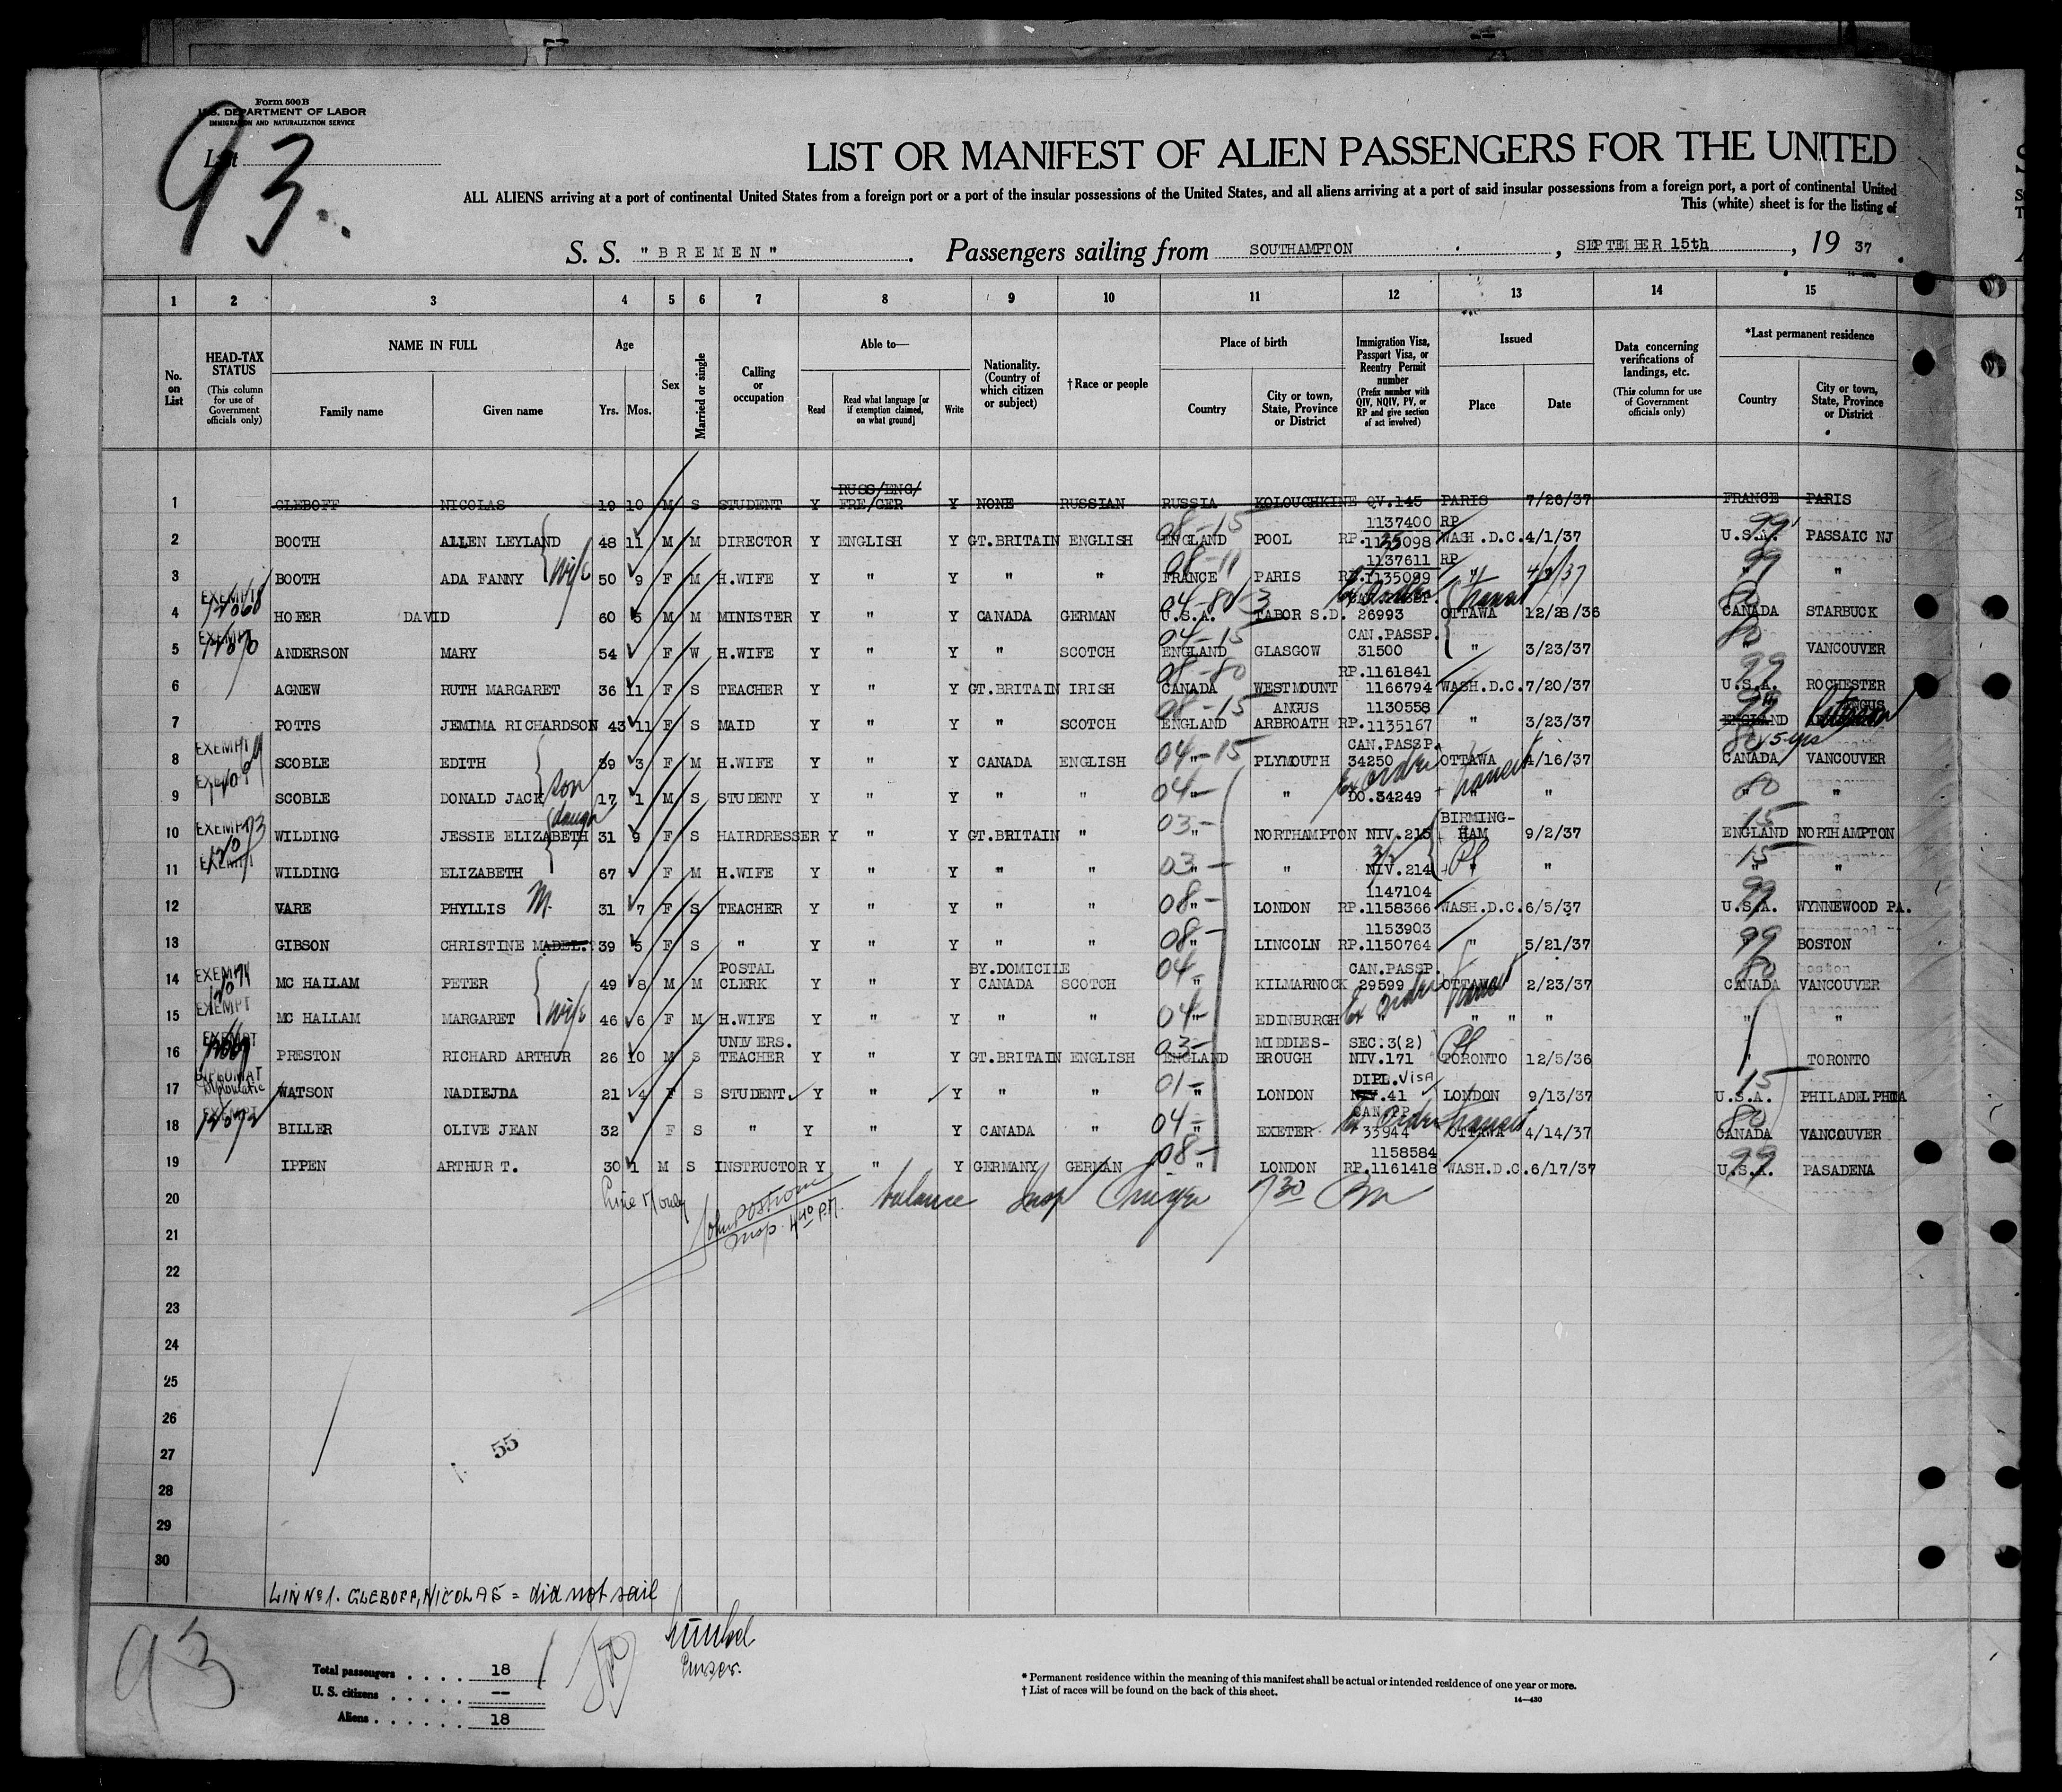 Form 500B
U.S. DEPARTMENT OF LABOR
IMMIGRATION AND NATURALIZATION SERVICE
List
93.
LIST OR MANIFEST OF ALIEN PASSENGERS FOR THE UNITED
ALL ALIENS arriving at a port of continental United States from a foreign port or a port of the insular possessions of the United States, and all aliens arriving at a port of said insular possessions from a foreign port, a port of continental United
This (white) sheet is for the listing of
S. S. "BREMEN" . Passengers sailing from SOUTHAMPTON , SEPTEMBER 15th , 19 37
1 2 3 4 5 6 7 8 9 10 11 12 13 14 15
No. on List
HEAD-TAX STATUS (This column for use of Government officials only)
NAME IN FULL
Family name Given name
Age
Yrs. Mos.
Sex
Married or single
Calling or occupation
Able to—
Read Read what language [or if exemption claimed, on what ground] Write
Nationality. (Country of which citizen or subject)
† Race or people
Place of birth
Country City or town, State, Province or District
Immigration Visa, Passport Visa, or Reentry Permit number (Prefix number with QIV, NQIV, PV, or RP and give section of act involved)
Issued
Place Date
Data concerning verifications of landings, etc. (This column for use of Government officials only)
*Last permanent residence
Country City or town, State, Province or District
RUSS/ENG/
1 GLEBOFF NICOLAS 19 10 M S STUDENT Y FRE/GER Y NONE RUSSIAN RUSSIA KOLOUCHKINE QV.145 PARIS 7/26/37 FRANCE PARIS
08-15 1137400 RP 99
2 BOOTH ALLEN LEYLAND 48 11 M M DIRECTOR Y ENGLISH Y GT.BRITAIN ENGLISH ENGLAND POOL RP.1135098 WASH.D.C. 4/1/37 U.S.A. PASSAIC NJ
wife 08-11 1137611 RP 99
3 BOOTH ADA FANNY 50 9 F M H.WIFE Y " Y " " FRANCE PARIS RP.1135099 " 4/2/37 "
EXEMPT 04-80 80
4 HOFER DAVID 60 5 M M MINISTER Y " Y CANADA GERMAN U.S.A. TABOR S.D. 26993 OTTAWA 12/28/36 CANADA STARBUCK
EXEMPT 04-15 CAN.PASSP. 80
5 ANDERSON MARY 54 F W H.WIFE Y " Y " SCOTCH ENGLAND GLASGOW 31500 " 3/23/37 " VANCOUVER
08-80 RP.1161841 99
6 AGNEW RUTH MARGARET 36 11 F S TEACHER Y " Y GT.BRITAIN IRISH CANADA WESTMOUNT 1166794 WASH.D.C. 7/20/37 U.S.A. ROCHESTER
08-15 ANGUS 1130558 ANGUS
7 POTTS JEMIMA RICHARDSON 43 11 F S MAID Y " Y " SCOTCH ENGLAND ARBROATH RP.1135167 " 3/23/37 ENGLAND
EXEMPT 04-15 CAN.PASSP. 80 5 yrs
8 SCOBLE EDITH 39 3 F M H.WIFE Y " Y CANADA ENGLISH " PLYMOUTH 34250 OTTAWA 4/16/37 CANADA VANCOUVER
son 04- 80
9 SCOBLE DONALD JACK 17 1 M S STUDENT Y " Y " " " " DO.34249 " " " "
EXEMPT daugh 03- BIRMING- 15
10 WILDING JESSIE ELIZABETH 31 9 F S HAIRDRESSER Y " Y GT.BRITAIN " " NORTHAMPTON NIV.215 HAM 9/2/37 ENGLAND NORTHAMPTON
EXEMPT 03- 15
11 WILDING ELIZABETH 67 F M H.WIFE Y " Y " " " " NIV.214 " " " "
M. 08- 1147104 99
12 VARE PHYLLIS 31 7 F S TEACHER Y " Y " " LONDON RP.1158366 WASH.D.C. 6/5/37 U.S.A. WYNNEWOOD PA.
08- 1153903 99
13 GIBSON CHRISTINE MADEL. 39 5 F S " Y " Y " " LINCOLN RP.1150764 " 5/21/37 " BOSTON
EXEMPT POSTAL BY.DOMICILE 04- CAN.PASSP. 80
14 MC HALLAM PETER 49 8 M M CLERK Y " Y CANADA SCOTCH " KILMARNOCK 29599 OTTAWA 2/23/37 CANADA VANCOUVER
EXEMPT wife 04-
15 MC HALLAM MARGARET 46 6 F M H.WIFE Y " Y " " " EDINBURGH " " " " " "
EXEMPT UNIVERS. 03- MIDDLES- SEC.3(2)
16 PRESTON RICHARD ARTHUR 26 10 M S TEACHER Y " Y GT.BRITAIN ENGLISH ENGLAND BROUGH NIV.171 TORONTO 12/5/36 " TORONTO
DIPLOMAT Diplomatic 01- DIPL.VISA 15
17 WATSON NADIEJDA 21 4 F S STUDENT Y " Y " " " LONDON 41 LONDON 9/13/37 U.S.A. PHILADELPHIA
EXEMPT 04- CAN.PP. 80
18 BILLER OLIVE JEAN 32 F S " Y " Y CANADA " " EXETER 33944 OTTAWA 4/14/37 CANADA VANCOUVER
08- 1158584 99
19 IPPEN ARTHUR T. 30 1 M S INSTRUCTOR Y " Y GERMANY GERMAN " LONDON RP.1161418 WASH.D.C. 6/17/37 U.S.A. PASADENA
20 balance Insp 7 30
21
22
23
24
25
26
27
28
29
30
55
LIN No 1. GLEBOFF, NICOLAS = did not sail
93
Total passengers . . . . 18
U. S. citizens . . . . . --
Aliens . . . . . . 18
Purser.
* Permanent residence within the meaning of this manifest shall be actual or intended residence of one year or more.
† List of races will be found on the back of this sheet.
14—430